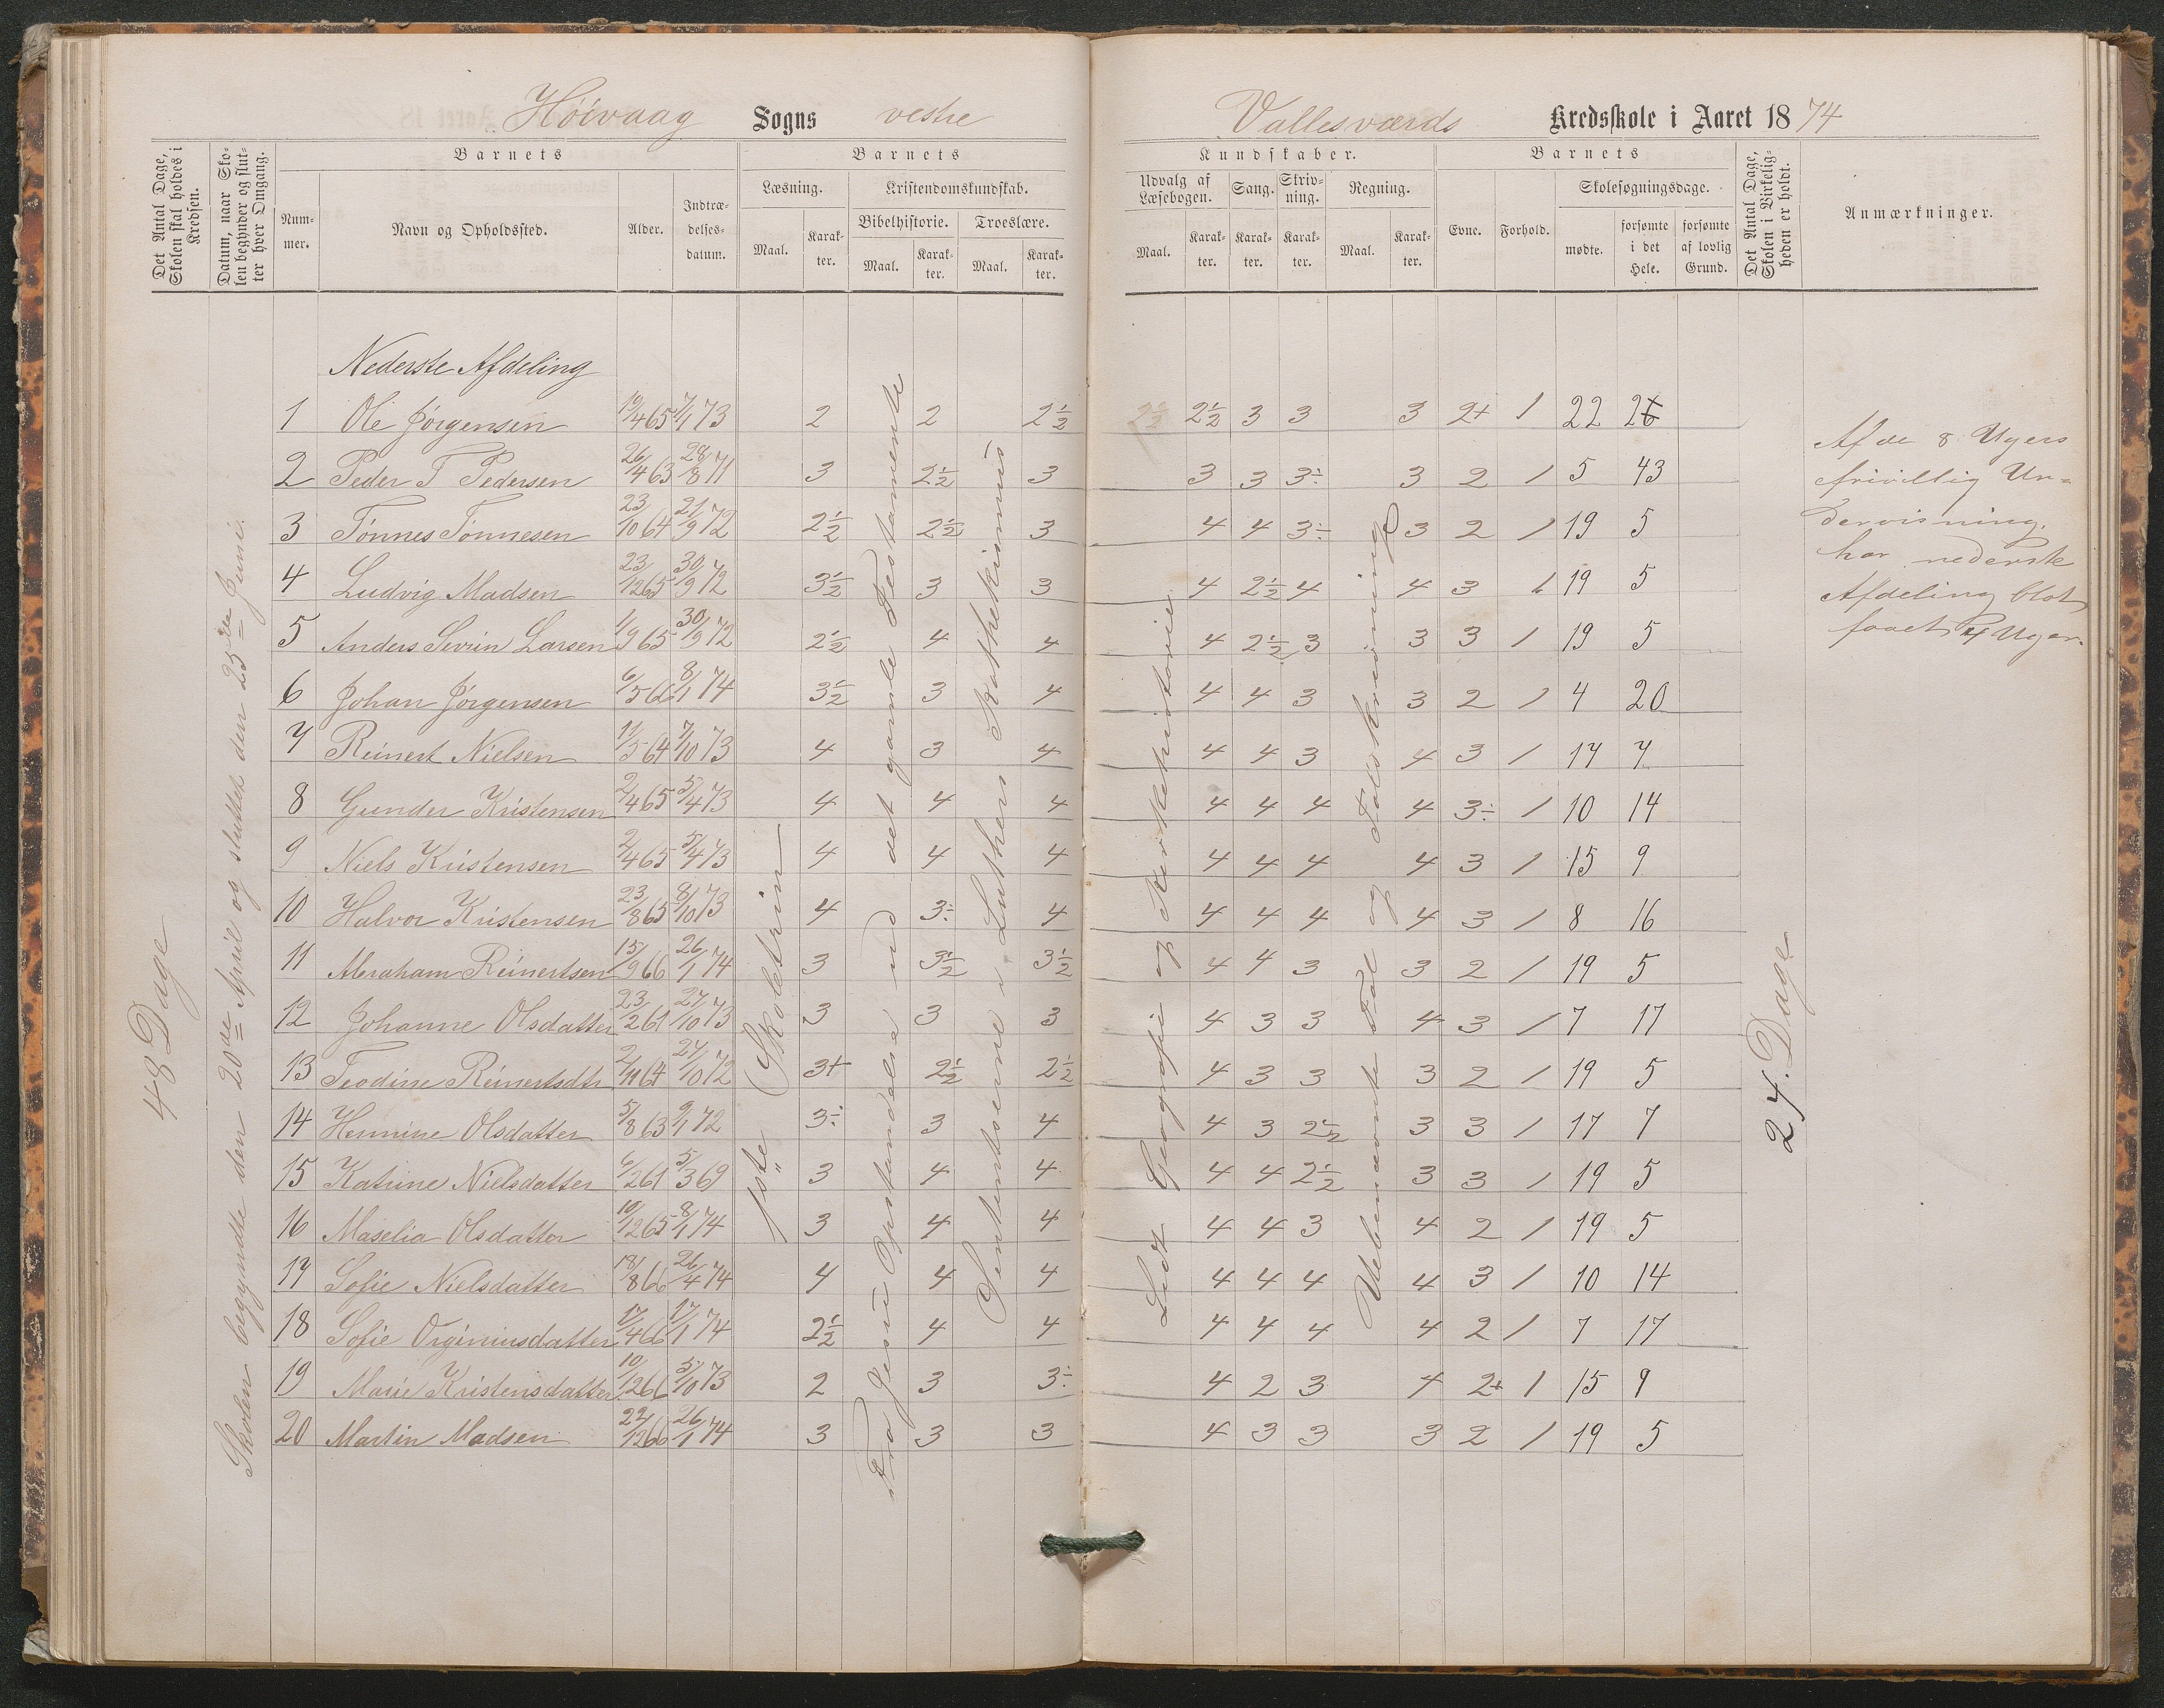 Höivaag Sogns vestre Vallesværds Kredsskole i Aaret 1874
Det Antal Dage, Skolen skal holdes i Kredsen.
Datum, naar Skolen begynder og slutter hver Omgang.
Barnets
Nummer.
Navn og Opholdssted.
Alder.
Indtrædelsesdatum.
Barnets
Læsning.
Maal.
Karakter.
Kristendomskundskab.
Bibelhistorie.
Maal.
Karakter.
Troeslære.
Maal.
Karakter.
Kundskaber.
Udvalg af Læsebogen.
Maal.
Karakter.
Sang.
Karakter.
Skrivning.
Karakter.
Regning.
Maal.
Karakter.
Barnets
Evne.
Forhold.
Skolesøgningsdage.
mødte.
forsømte i det Hele.
forsømte af lovlig Grund.
Det Antal Dage, Skolen i Virkeligheden er holdt.
Anmærkninger.
48 Dage
Skolen begyndte den 20de April og sluttet den 23de Juni.
Nederste Afdeling
1 Ole Jørgensen 19/4 65 7/1 73 2 2 2½ 2½ 2½ 3 3 3 2+ 1 22 2
2 Peder T Pedersen 26/4 63 28/8 71 3 2½ 3 3 3 3÷ 3 2 1 5 43
3 Tønnes Tønnesen 23/10 64 21/9 72 2½ 2½ 3 4 4 3÷ 3 2 1 19 5
4 Ludvig Madsen 23/12 65 30/9 72 3½ 3 3 4 2½ 4 4 3 1 19 5
5 Anders Sevrin Larsen 1/9 65 30/9 72 2½ 4 4 4 2½ 3 3 3 1 19 5
6 Johan Jørgensen 6/5 66 8/1 74 3½ 3 4 4 4 3 3 2 1 4 20
7 Reinert Nielsen 11/5 64 7/10 73 4 3 4 4 4 3 4 3 1 17 7
8 Gunder Kristensen 2/4 65 5/4 73 4 4 4 4 4 4 4 3÷ 1 10 14
9 Niels Kristensen 2/4 65 5/4 73 4 4 4 4 4 4 4 3 1 15 9
10 Halvor Kristensen 23/8 65 8/10 73 4 3÷ 4 4 4 4 4 3 1 8 16
11 Abraham Reinertsen 15/9 66 26/1 74 3 3½ 3½ 4 4 3 3 2 1 19 5
12 Johanne Olsdatter 23/2 61 27/10 73 3 3 3 4 3 3 4 3 1 7 17
13 Teodine Reinertsdtr 2/11 64 27/10 72 3+ 2½ 2½ 4 3 3 3 2 1 19 5
14 Hermine Olsdatter 5/8 63 9/1 72 3÷ 3 4 4 3 2½ 3 3 1 17 7
15 Katrine Nielsdatter 6/2 61 5/3 69 3 4 4 4 4 2½ 3 3 1 19 5
16 Maselia Olsdatter 10/12 65 8/1 74 3 4 4 4 4 3 4 2 1 19 5
17 Sofie Nielsdatter 18/8 66 26/4 74 4 4 4 4 4 4 4 3 1 10 14
18 Sofie Orginiusdatter 17/4 66 17/1 74 2½ 4 4 4 4 4 4 2 1 7 17
19 Marie Kristensdatter 10/12 66 5/10 73 2 3 3÷ 4 2 3 4 2+ 1 15 9
20 Martin Madsen 22/12 66 26/1 74 3 3 3 4 3 3 3 2 1 19 5
1ste Skoletrin
Fra Jesu Opstandelse ud det gamle Testamente
Sententserne i Luthers Kathekismus
Lidt Geografi og Kirkehistorie
Ubenævnte Tal og Talskrivning
24. Dage
Af de 8 Ugers
frivillig Un-
dervisning.
har nederste
Afdeling blot
faaet 4 Uger.